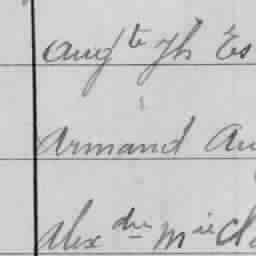 Augte Jh Es
Armand Au
Alexdre Mie Cl